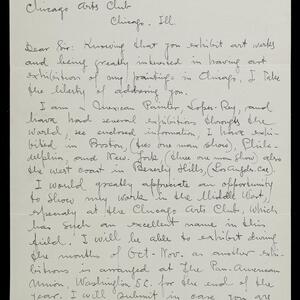 Chicago Arts Club
Chicago. Ill
Dear Sir: Knowing that you exhibit art works
and being greatly interested in having art
exhibition of my paintings in Chicago, I take
the liberty of addressing you.
I am a Mexican Painter, Lopez-Rey, and
have had several exhibitions through the
world, see enclosed information, I have exhi-
bited in Boston, (two one man show), Phila-
delphia, and New York, (three one man show) also
the west coast in Beverly Hills, (Los Angeles, Ca).
I would greatly appreciate an opportunity
to show my work in the Middle West,
especialy at the Chicago Arts Club, which
has such an excellent name in this
field. I will be able to exhibit during
the months of Oct-Nov. as another exhi-
bitions is arranged at the Pan-American
Union, Washington D.C. for the end of the
year. I will submit in case you are